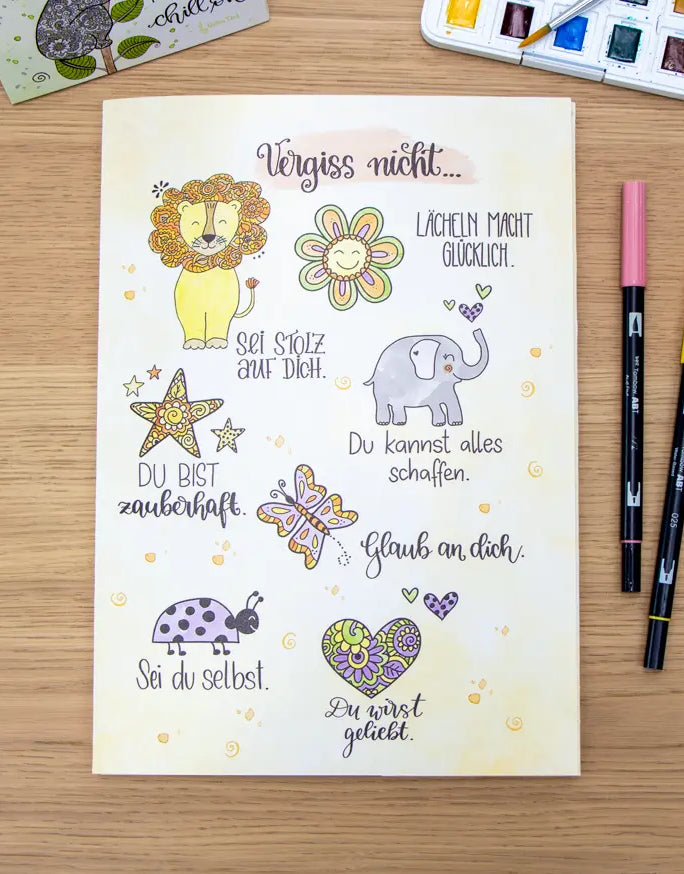 chill
Vergiss nicht...
LÄCHELN MACHT
GLÜCKLICH.
SEi STOLZ
AUF DiCH.
Du kannst alles
schaffen.
DU BIST
zauberhaft.
Glaub an dich.
Sei du selbst.
Du wirst
geliebt.
Tombow ABT
Tombow ABT
025